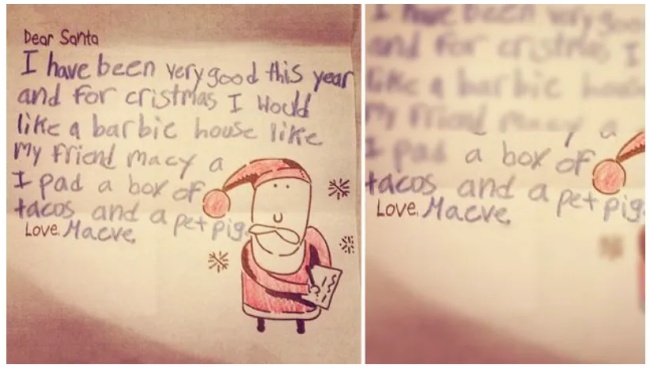 Dear Santa
I have been very good this year
and for cristmas I Would
like a barbie house like
My friend macy a
I pad a box of
tacos and a pet pig.
Love, Maeve
I have been very goo
and for cristmas I
like a barbie house
My friend macy a
I pad a box of
tacos and a pet pig.
Love, Maeve